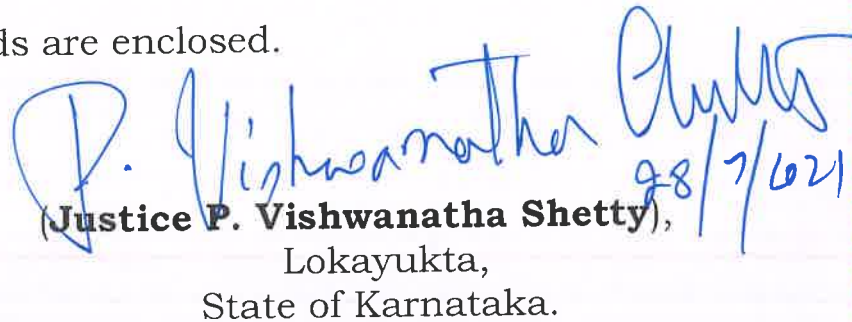 ds are enclosed.
P. Vishwanatha Shetty
28/7/2021
(Justice P. Vishwanatha Shetty),
Lokayukta,
State of Karnataka.